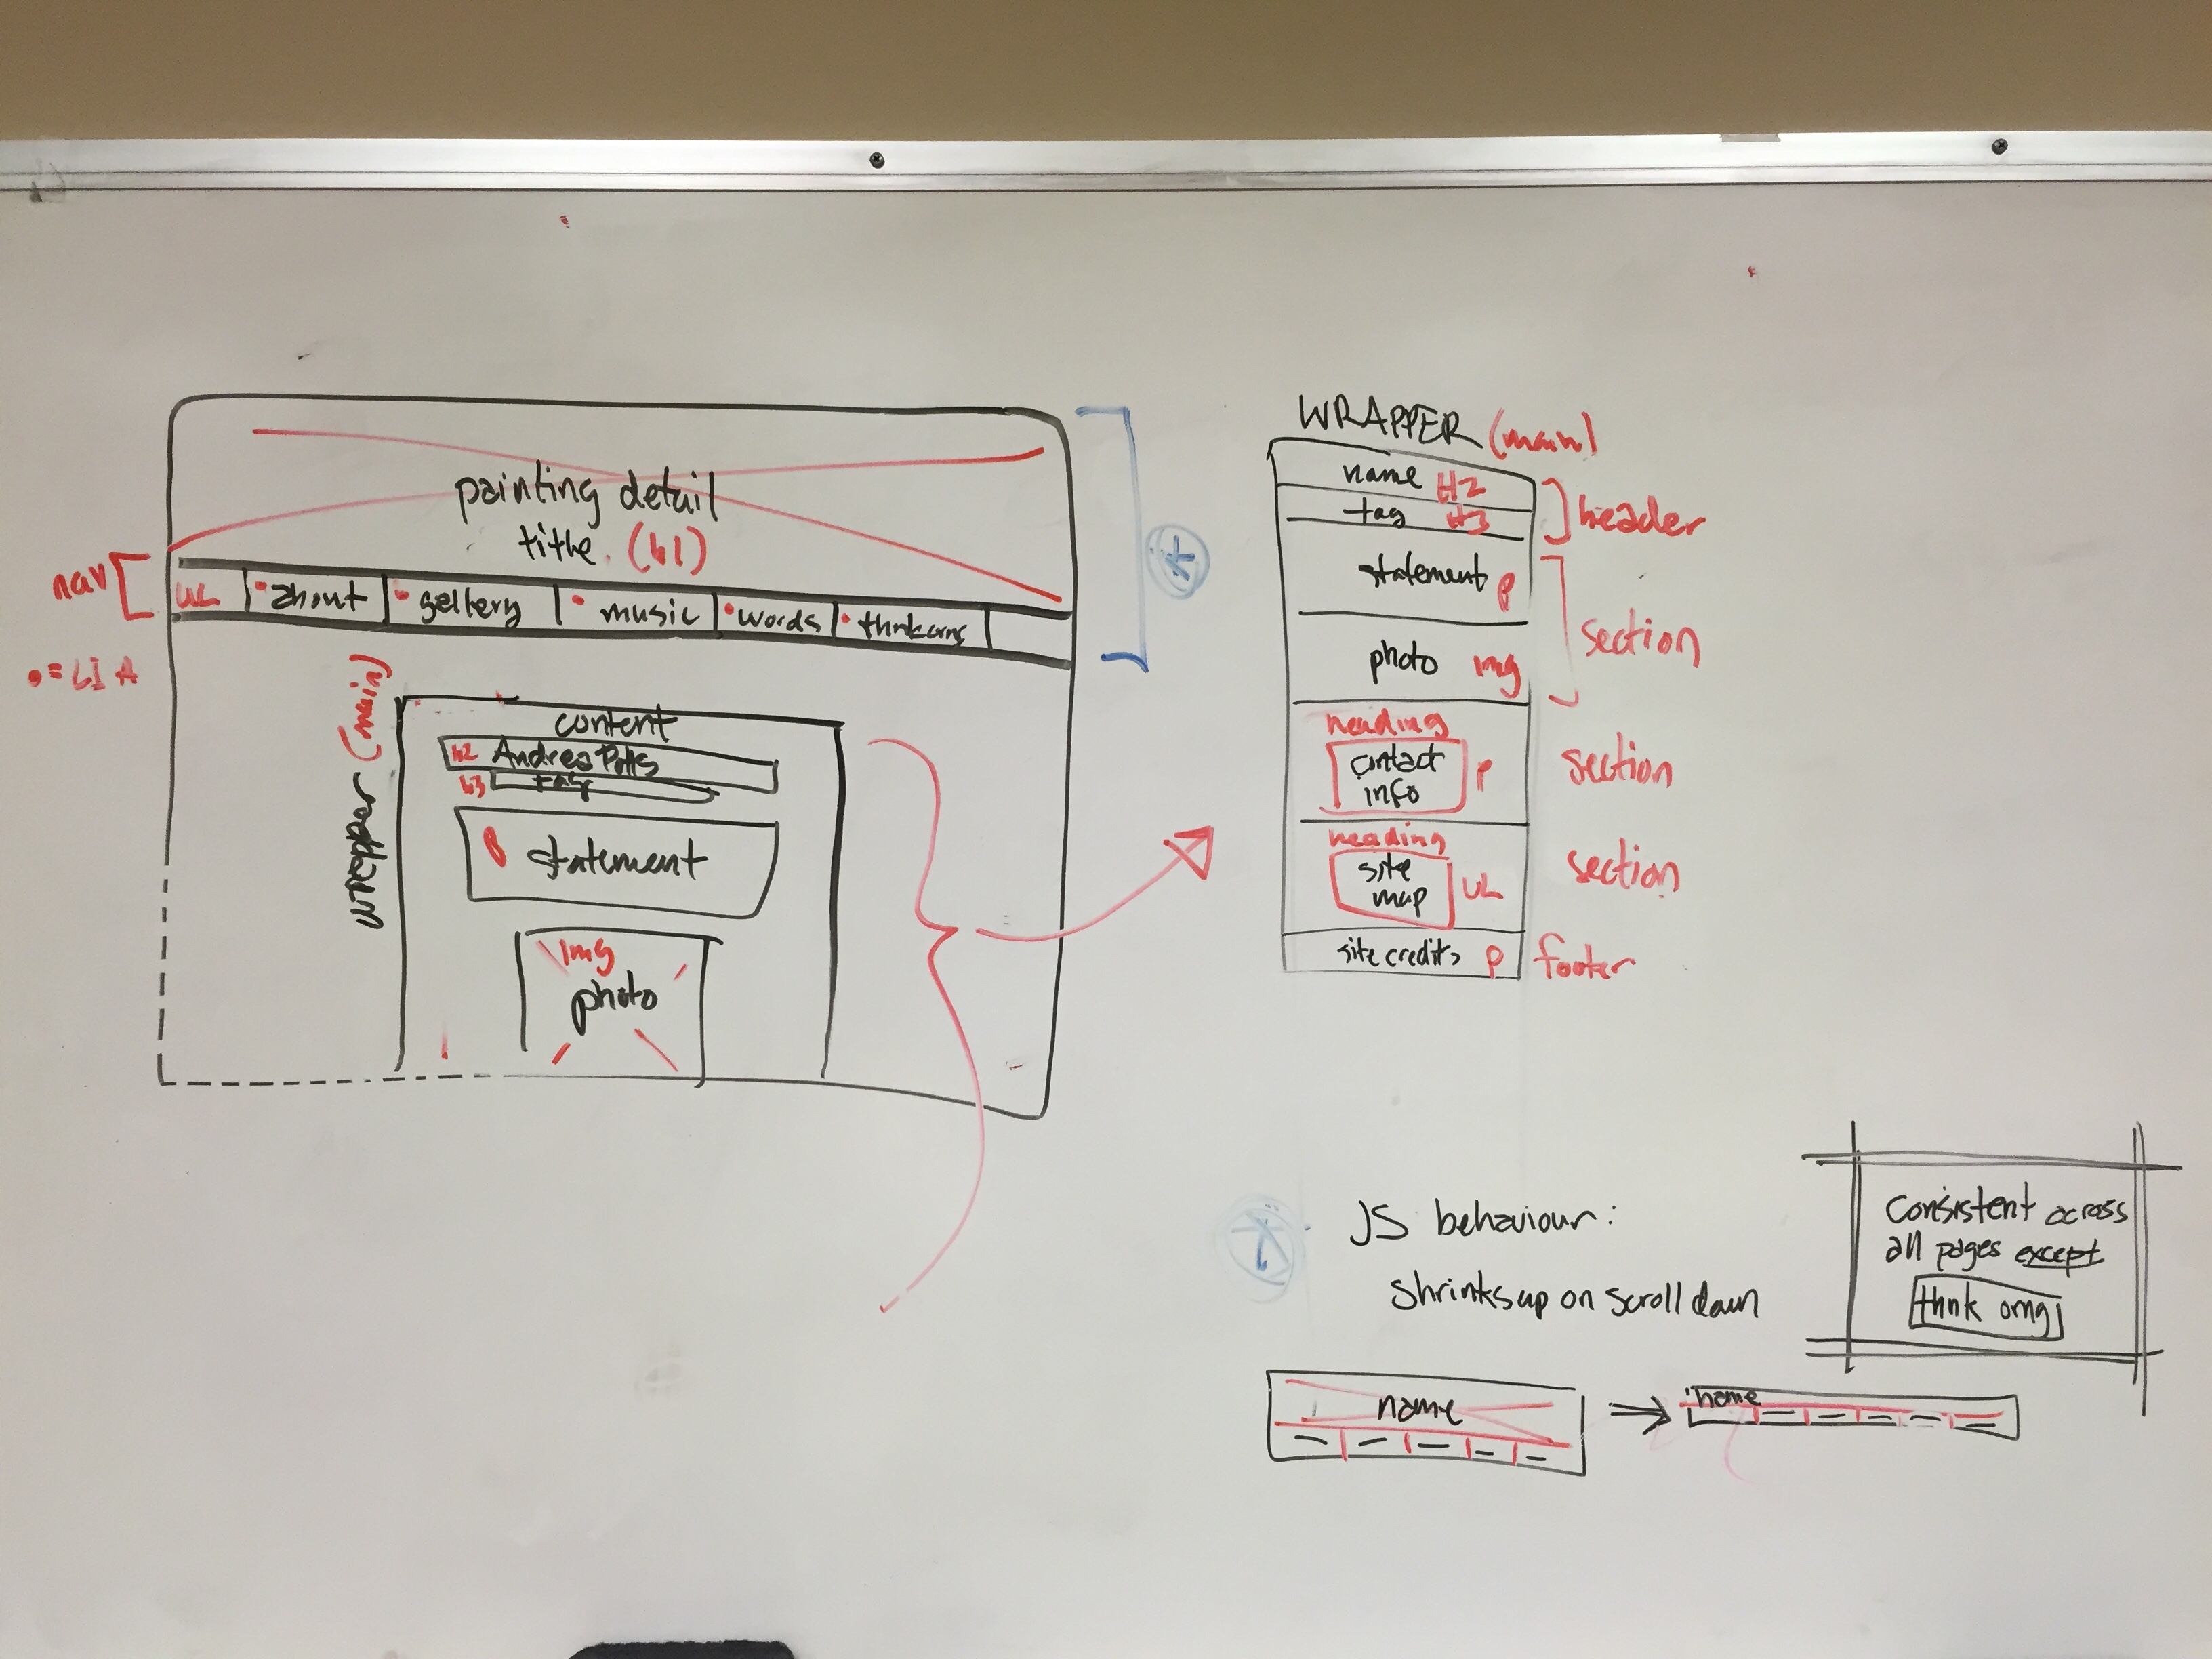 painting detail
title (h1)
nav
UL
about
gallery
music
words
• = LI A
wrapper (main)
content
h2 Andrea Potts
h3 tag
p statement
img
photo
WRAPPER (main)
name H2
tag H3
header
statement p
photo img
section
heading
contact
info
p
section
heading
site
map
UL
section
site credits p
footer
JS behaviour:
shrinks up on scroll down
Consistent across
all pages except
thnk omg
name
name